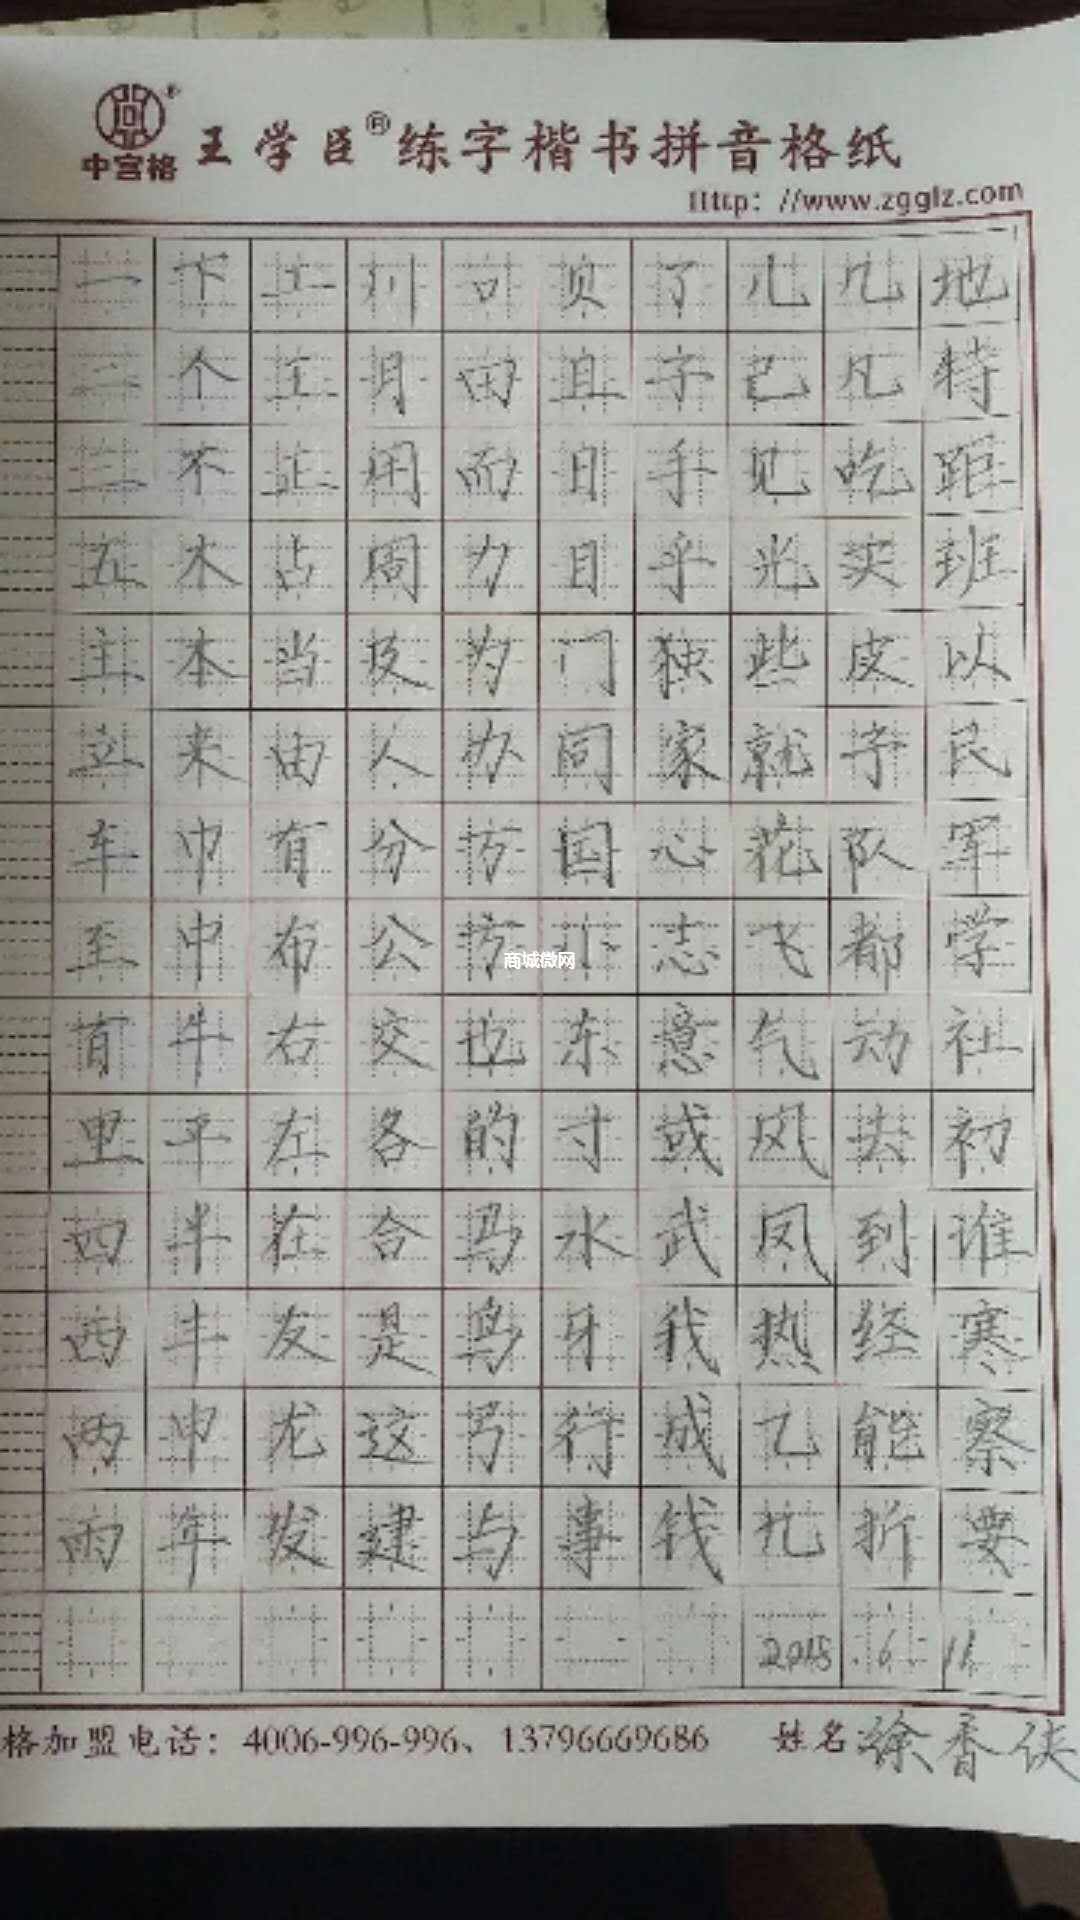 中宫格
王学臣®练字楷书拼音格纸
Http: //www.zgglz.com
一下工川口贝了儿几地
二个王月田且子己凡特
三不正用而日手见吃距
五木占周力目乎光买班
主本当皮为门独些皮以
立来由人办同家就予民
车巾有分万国心花队军
至中布公方小志飞都学
商城微网
百牛右交也东意气动社
里平左各的寸或风去初
四半在合马水武凤到谁
西丰友是鸟牙我热经寒
两申龙这弓行成乙能察
雨年发建与事钱扎折要
2018.6.11
格加盟电话：4006-996-996、13796669686 姓名 徐香侠